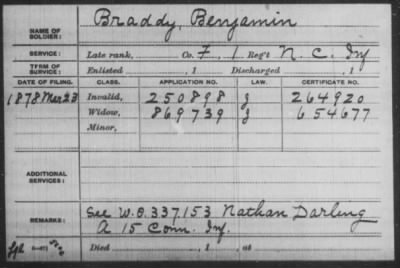 Braddy, Benjamin
NAME OF SOLDIER:
SERVICE: Late rank, Co. F, 1 Reg't N. C. Inf
TERM OF SERVICE: Enlisted , 1 Discharged , 1
DATE OF FILING. CLASS. APPLICATION NO. LAW. CERTIFICATE NO.
1878 Mar 23 Invalid, 250898 g 264920
Widow, 869739 g 654677
Minor,
ADDITIONAL SERVICES:
See W.O. 337,153 Nathan Darling
REMARKS: A 15 Conn. Inf.
Died , 1 , at